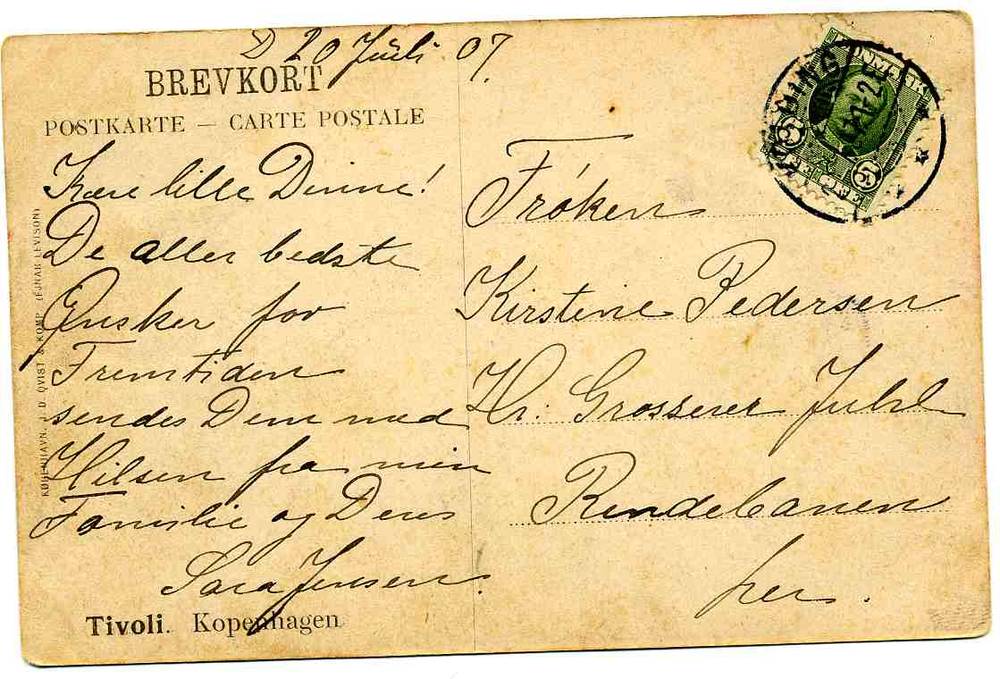 D 20 Juli 07.
BREVKORT
POSTKARTE — CARTE POSTALE
Kære lille Dinne!
De aller bedste
Ønsker for
Fremtiden
sendes Dem med
Hilsen fra min
Familie og Deres
Sara Jensen.
Tivoli. Kopenhagen
KØBENHAVN. J. D. QVIST & KOMP. (EJNAR LEVISON)
Frøken
Kirstine Pedersen
Hr: Grosserer Juhl
Rendebanen
her.
5 5